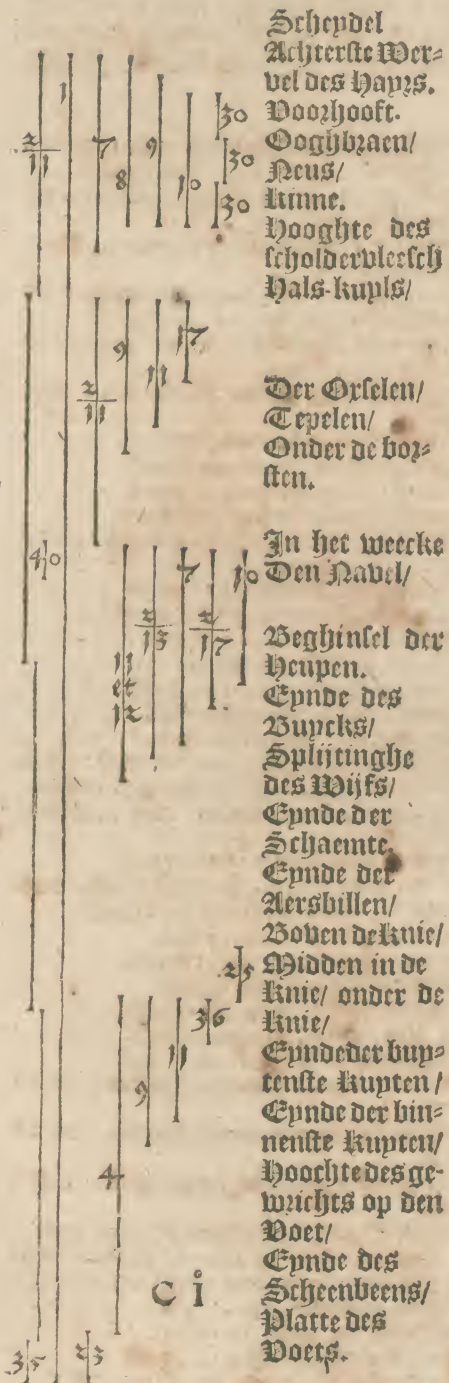 Scheydel
Achterste Wer=
vel des Hayrs.
Voorhooft.
Ooghbraen/
Neus/
Kinne.
Hooghte des
scholdervleesch
Hals-kuyls/
Der Oxselen/
Tepelen/
Onder de bor=
sten.
In het weecke
Den Navel/
Beghinsel der
Heupen.
Eynde des
Buycks/
Splijtinghe
des Wijfs/
Eynde der
Schaemte.
Eynde der
Aersbillen/
Boven de knie/
Midden in de
knie/ onder de
knie/
Eynde der buy=
tenste kuyten/
Eynde der bin=
nenste kuyten/
Hoochte des ge-
wrichts op den
Voet/
Eynde des
Scheenbeens/
Platte des
Voets.
1
2
11
7
8
9
10
30
30
30
2
11
9
11
17
40
11
et
12
2
13
7
2
17
10
25
4
9
11
36
C i
35
23